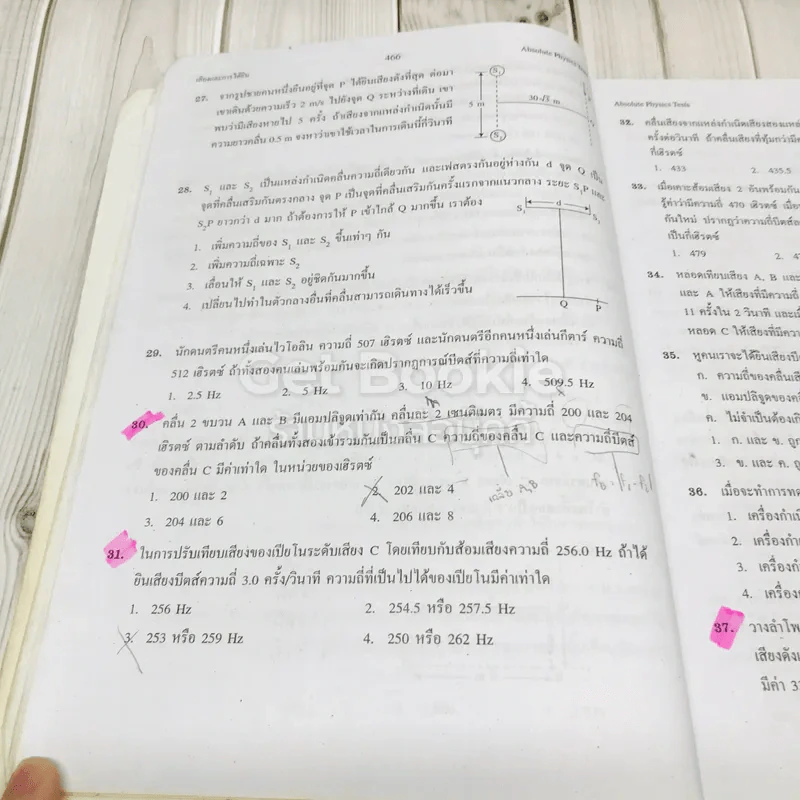 466
เสียงและการได้ยิน
Absolute Physics
27. จากรูปชายคนหนึ่งยืนอยู่ที่จุด P ได้ยินเสียงดังที่สุด ต่อมา
เขาเดินด้วยความเร็ว 2 m/s ไปยังจุด Q ระหว่างที่เดิน เขา
พบว่ามีเสียงหายไป 5 ครั้ง ถ้าเสียงจากแหล่งกำเนิดนั้นมี
ความยาวคลื่น 0.5 m จงหาว่าเขาใช้เวลาในการเดินนี้กี่วินาที
S₁
5 m
30√3 m
S₂
28. S₁ และ S₂ เป็นแหล่งกำเนิดคลื่นความถี่เดียวกัน และเฟสตรงกันอยู่ห่างกัน d จุด Q เป็น
จุดที่คลื่นเสริมกันตรงกลาง จุด P เป็นจุดที่คลื่นเสริมกันครั้งแรกจากแนวกลาง ระยะ S₁P และ
S₂P ยาวกว่า d มาก ถ้าต้องการให้ P เข้าใกล้ Q มากขึ้น เราต้อง
1. เพิ่มความถี่ของ S₁ และ S₂ ขึ้นเท่าๆ กัน
2. เพิ่มความถี่เฉพาะ S₂
3. เลื่อนให้ S₁ และ S₂ อยู่ชิดกันมากขึ้น
4. เปลี่ยนไปทำในตัวกลางอื่นที่คลื่นสามารถเดินทางได้เร็วขึ้น
S₁
d
S₂
Q
P
29. นักดนตรีคนหนึ่งเล่นไวโอลิน ความถี่ 507 เฮิรตซ์ และนักดนตรีอีกคนหนึ่งเล่นกีตาร์ ความถี่
512 เฮิรตซ์ ถ้าทั้งสองคนเล่นพร้อมกันจะเกิดปรากฏการณ์บีตส์ที่ความถี่เท่าใด
1. 2.5 Hz 2. 5 Hz 3. 10 Hz 4. 509.5 Hz
Get Bookie
30. คลื่น 2 ขบวน A และ B มีแอมปลิจูดเท่ากัน คลื่นละ 2 เซนติเมตร มีความถี่ 200 และ 204
เฮิรตซ์ ตามลำดับ ถ้าคลื่นทั้งสองเข้ารวมกันเป็นคลื่น C ความถี่ของคลื่น C และความถี่บีตส์
ของคลื่น C มีค่าเท่าใด ในหน่วยของเฮิรตซ์
1. 200 และ 2
2. 202 และ 4
3. 204 และ 6
4. 206 และ 8
31. ในการปรับเทียบเสียงของเปียโนระดับเสียง C โดยเทียบกับส้อมเสียงความถี่ 256.0 Hz ถ้าได้
ยินเสียงบีตส์ความถี่ 3.0 ครั้ง/วินาที ความถี่ที่เป็นไปได้ของเปียโนมีค่าเท่าใด
1. 256 Hz
2. 254.5 หรือ 257.5 Hz
3. 253 หรือ 259 Hz
4. 250 หรือ 262 Hz
Absolute Physics Tests
32. คลื่นเสียงจากแหล่งกำเนิดเสียงสองแหล่
ครั้งต่อวินาที ถ้าคลื่นเสียงที่ทุ้มกว่ามี
กี่เฮิรตซ์
1. 433 2. 435.5
33. เมื่อเคาะส้อมเสียง 2 อันพร้อมกัน
รู้ค่าว่ามีความถี่ 470 เฮิรตซ์ เมื่อ
กันใหม่ ปรากฏว่าความถี่บีตส์
เป็นกี่เฮิรตซ์
1. 479
34. หลอดเทียบเสียง A, B และ
และ A ให้เสียงที่มีความถี่
11 ครั้งใน 2 วินาที และเมื่
หลอด C ให้เสียงที่มีความ
35. หูคนเราจะได้ยินเสียงบีต
ก. ความถี่ของคลื่นเสี
ข. แอมปลิจูดของคลื่
ค. ไม่จำเป็นต้องเกิ
1. ก. และ ข. ถูก
3. ข. และ ค. ถู
36. เมื่อจะทำการทด
1. เครื่องกำเนิ
2. เครื่องกำเ
3. เครื่องก
4. เครื่อง
37. วางลำโพ
เสียงดังเ
มีค่า 33